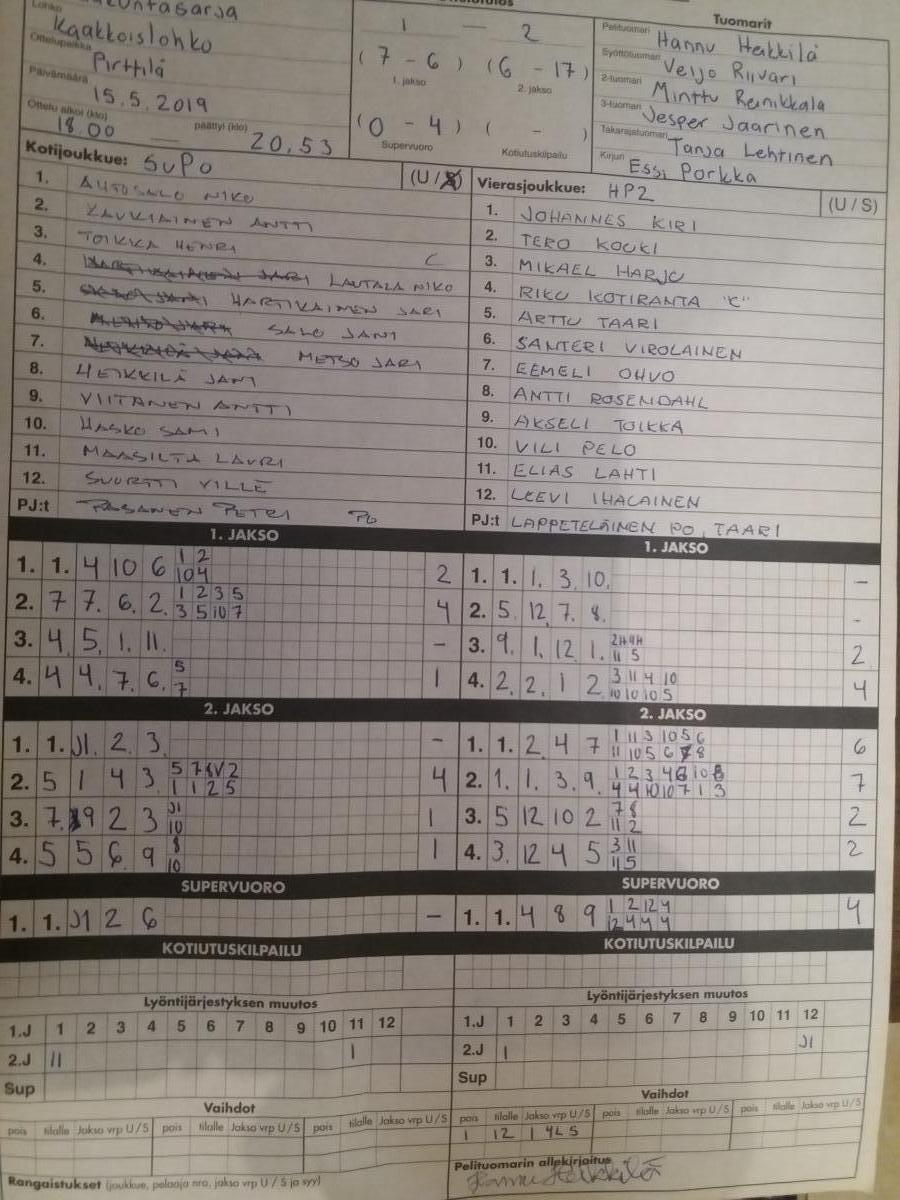 Lohko
Kaakkoislohko
Ottelupaikka
Pirttilä
Päivämäärä
15.5.2019
Ottelu alkoi (klo) päättyi (klo)
18.00 20.53
1 — 2
(7 - 6) (6 - 17)
1. jakso 2. jakso
(0 - 4) ( - )
Supervuoro Kotiutuskilpailu
Tuomarit
Pelituomari Hannu Heikkilä
Syöttötuomari Veijo Riivari
2-tuomari Minttu Reinikkala
3-tuomari Jesper Jaarinen
Takarajatuomari Tanja Lehtinen
Kirjuri Essi Porkka
Kotijoukkue: SuPo (U/S)
1. AUTOSALO NIKO
2. KAUKIAINEN ANTTI
3. TOIKKA HENRI
4. LAUTALA NIKO C
5. HARTIKAINEN JARI
6. SALO JANI
7. METSO JARI
8. HEIKKILÄ JANI
9. VIITANEN ANTTI
10. HASKO SAMI
11. MAASILTA LAURI
12. SUORTTI VILLE
PJ:t PASANEN PETRI PO
Vierasjoukkue: HP2 (U/S)
1. JOHANNES KIRI
2. TERO KOUKI
3. MIKAEL HARJU
4. RIKU KOTIRANTA "C"
5. ARTTU TAARI
6. SANTERI VIROLAINEN
7. EEMELI OHVO
8. ANTTI ROSENDAHL
9. AKSELI TOIKKA
10. VILI PELO
11. ELIAS LAHTI
12. LEEVI IHALAINEN
PJ:t LAPPETELÄINEN PO, TAARI
1. JAKSO
1. 1. 4 10 6 1 2 2
10 4
2. 7 7. 6. 2. 1 2 3 5 4
3 5 10 7
3. 4. 5. 1. 11. –
4. 4 4. 7. 6. 5 1
7
1. JAKSO
1. 1. 1. 3. 10. –
2. 5. 12. 7. 8. -
3. 9. 1. 12 1. 2
11 5
4. 2. 2. 1 2 3 11 4 10 4
10 10 10 5
2. JAKSO
1. 1. 11. 2. 3. –
2. 5 1 4 3. 4
1 1 2 5
3. 7. 9 2 3 11 1
10
4. 5 5 6 9 8 1
10
2. JAKSO
1. 1. 2 4 7 1 11 3 10 5 6 6
11 10 5 6 8
2. 1. 1. 3. 9. 7
4 4 10 10 7 1 3
3. 5 12 10 2 7 8 2
11 2
4. 3. 12 4 5 3 11 2
11 5
SUPERVUORO
1. 1. 11 2 6 –
SUPERVUORO
1. 1. 4 8 9 1 2 12 4 4
12 4 4 4
KOTIUTUSKILPAILU
KOTIUTUSKILPAILU
Lyöntijärjestyksen muutos
1.J 1 2 3 4 5 6 7 8 9 10 11 12
2.J 11 1
Sup
Lyöntijärjestyksen muutos
1.J 1 2 3 4 5 6 7 8 9 10 11 12
2.J 1 11
Sup
Vaihdot
pois tilalle Jakso vrp U/S pois tilalle Jakso vrp U/S pois tilalle Jakso vrp U/S
Vaihdot
pois tilalle Jakso vrp U/S pois tilalle Jakso vrp U/S pois tilalle Jakso vrp U/S
1 12 1 4L S
Rangaistukset (joukkue, pelaaja nro, jakso vrp U/S ja syy)
Pelituomarin allekirjoitus
Hannu Heikkilä